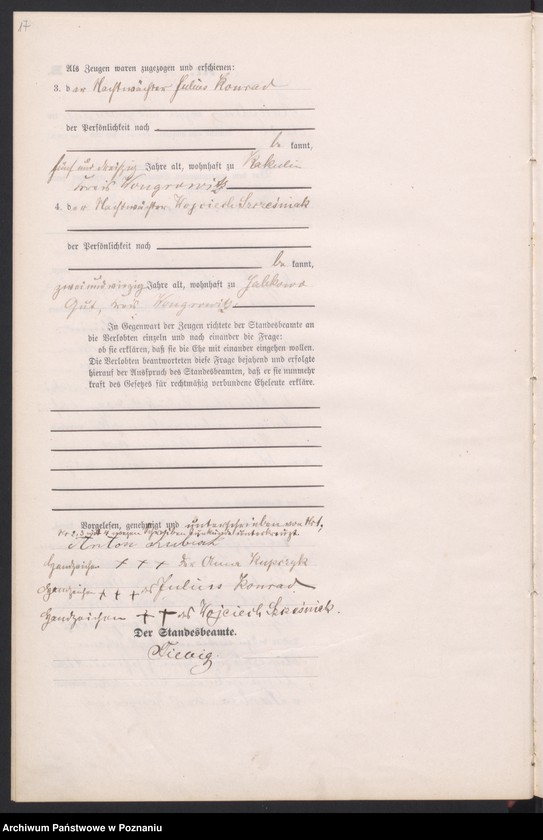 17
Als Zeugen waren zugezogen und erschienen:
3. der Nachtwächter Julius Konrad
der Persönlichkeit nach
be kannt,
fünf und dreißig Jahre alt, wohnhaft zu Kakulin
Kreis Wongrowitz
4. der Nachtwächter Wojciech Szcześniak
der Persönlichkeit nach
be kannt,
zwei und vierzig Jahre alt, wohnhaft zu Jabkowo
Gut, Kreis Wongrowitz
In Gegenwart der Zeugen richtete der Standesbeamte an
die Verlobten einzeln und nach einander die Frage:
ob sie erklären, daß sie die Ehe mit einander eingehen wollen.
Die Verlobten beantworteten diese Frage bejahend und erfolgte
hierauf der Ausspruch des Standesbeamten, daß er sie nunmehr
kraft des Gesetzes für rechtmäßig verbundene Eheleute erkläre.
Vorgelesen, genehmigt und unterschrieben von No 1,
No 2, 3 und 4 wegen Schreibensunkunde unterkreuzt
Anton Kubiak
Handzeichen + + + der Anna Kupczyk
Handzeichen + + + des Julius Konrad
Handzeichen + + des Wojciech Szcześniak.
Der Standesbeamte.
Archiwum Państwowe w Poznaniu